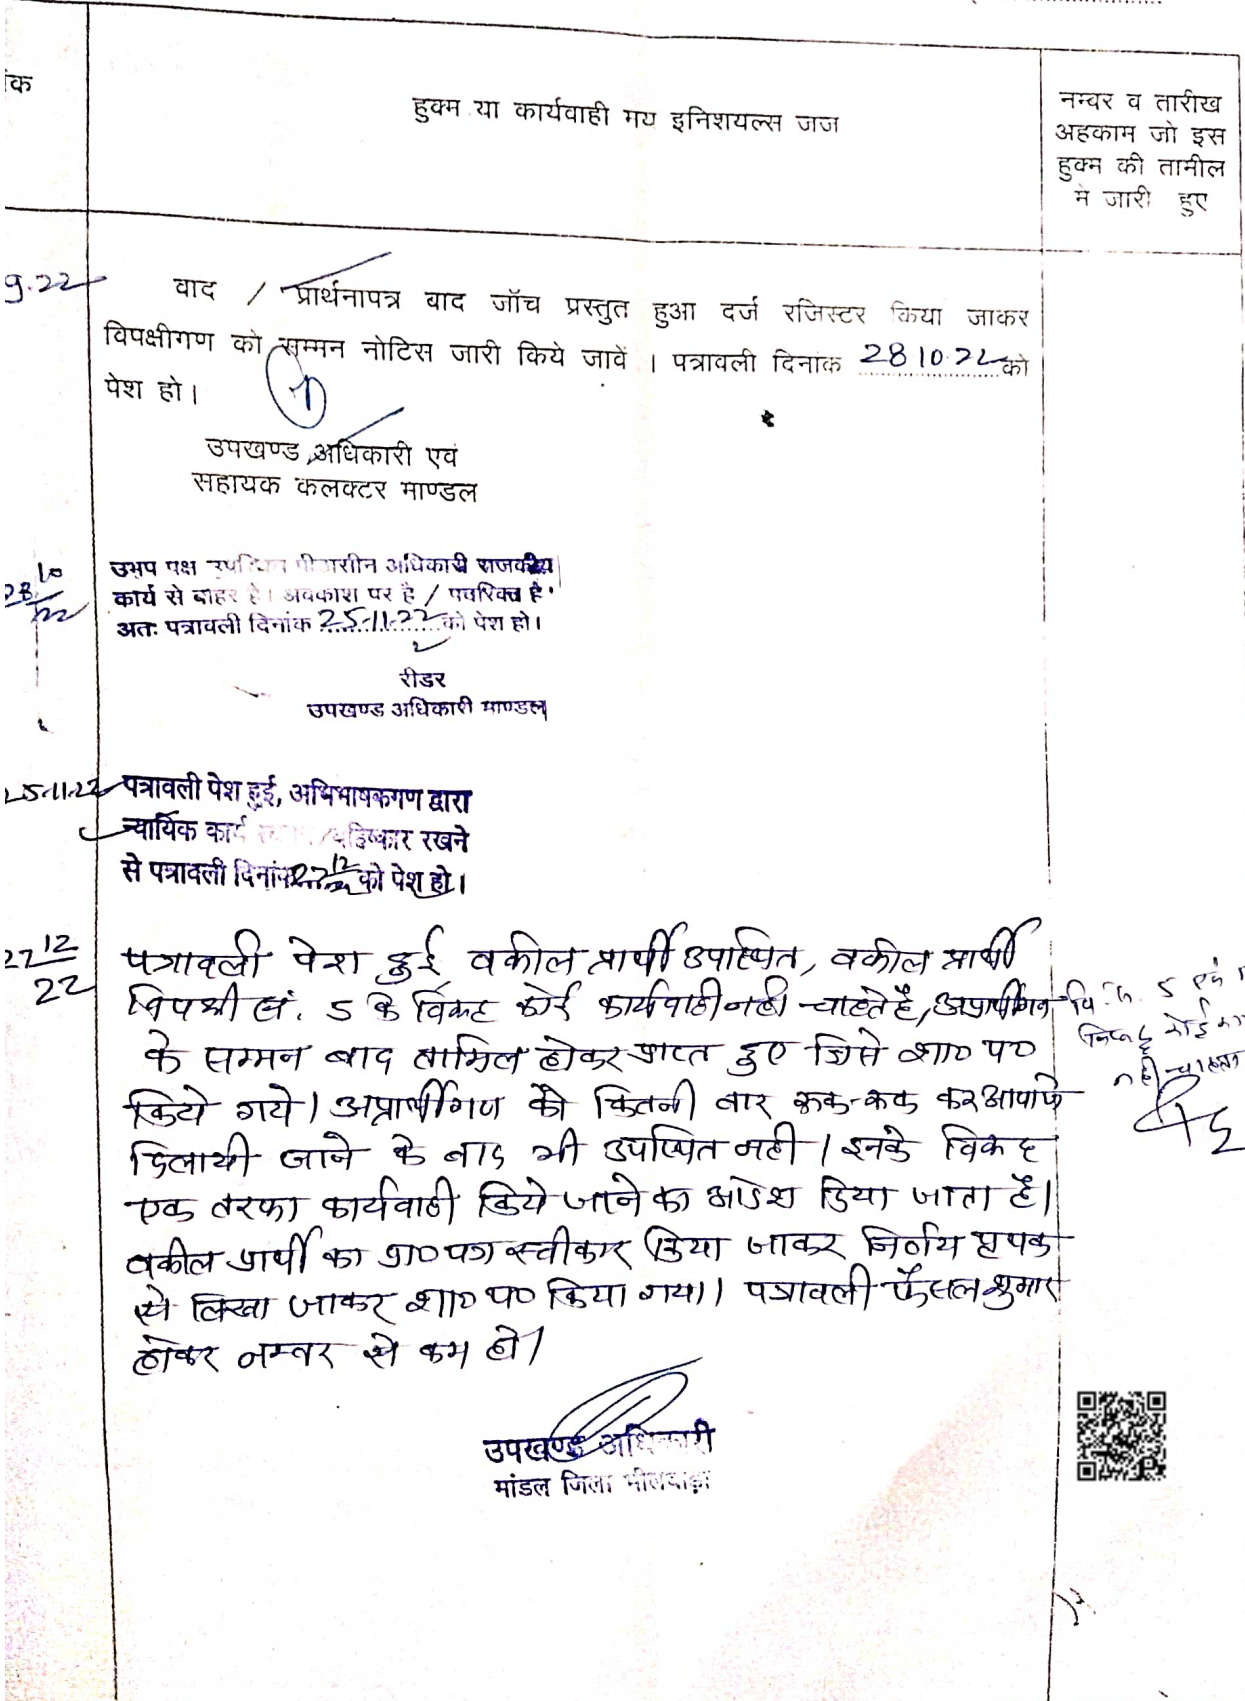 ंक
हुक्म या कार्यवाही मय इनिशयल्स जज
नम्बर व तारीख
अहकाम जो इस
हुक्म की तामील
मे जारी हुए
9.22
वाद / प्रार्थनापत्र बाद जॉच प्रस्तुत हुआ दर्ज रजिस्टर किया जाकर
विपक्षीगण को सम्मन नोटिस जारी किये जावें । पत्रावली दिनांक 28 10.22 को
पेश हो।
उपखण्ड अधिकारी एवं
सहायक कलक्टर माण्डल
28/10/22
उभप पक्ष उपस्थित पीठासीन अधिकारी राजकीय
कार्य से बाहर है। अवकाश पर है / पदरिक्त है
अतः पत्रावली दिनांक 25-11-22 को पेश हो।
रीडर
उपखण्ड अधिकारी माण्डल
25-11-22
पत्रावली पेश हुई, अभिभाषकगण द्वारा
न्यायिक कार्य बहिष्कार रखने
से पत्रावली दिनांक 27/12/22 को पेश हो।
27 12/22
पत्रावली पेश हुई वकील प्रार्थी उपस्थित, वकील प्रार्थी
विपक्षी सं. 5 के विरुद्ध कोई कार्यवाही नही चाहते है, अप्रार्थीगण
के सम्मन बाद तामिल होकर प्राप्त हुए जिसे शा० प०
किये गये। अप्रार्थीगण को कितनी बार रूक-रूक कर आवाजे
दिलायी जाने के बाद भी उपस्थित नही। इनके विरूद्ध
एक तरफा कार्यवाही किये जाने का आदेश दिया जाता है।
वकील प्रार्थी का प्रा० पत्र स्वीकार किया जाकर निर्णय पृथक
से लिखा जाकर शा० प० किया गया। पत्रावली फैसल शुमार
होकर नम्बर से कम हो।
उपखण्ड अधिकारी
मांडल जिला भीलवाड़ा